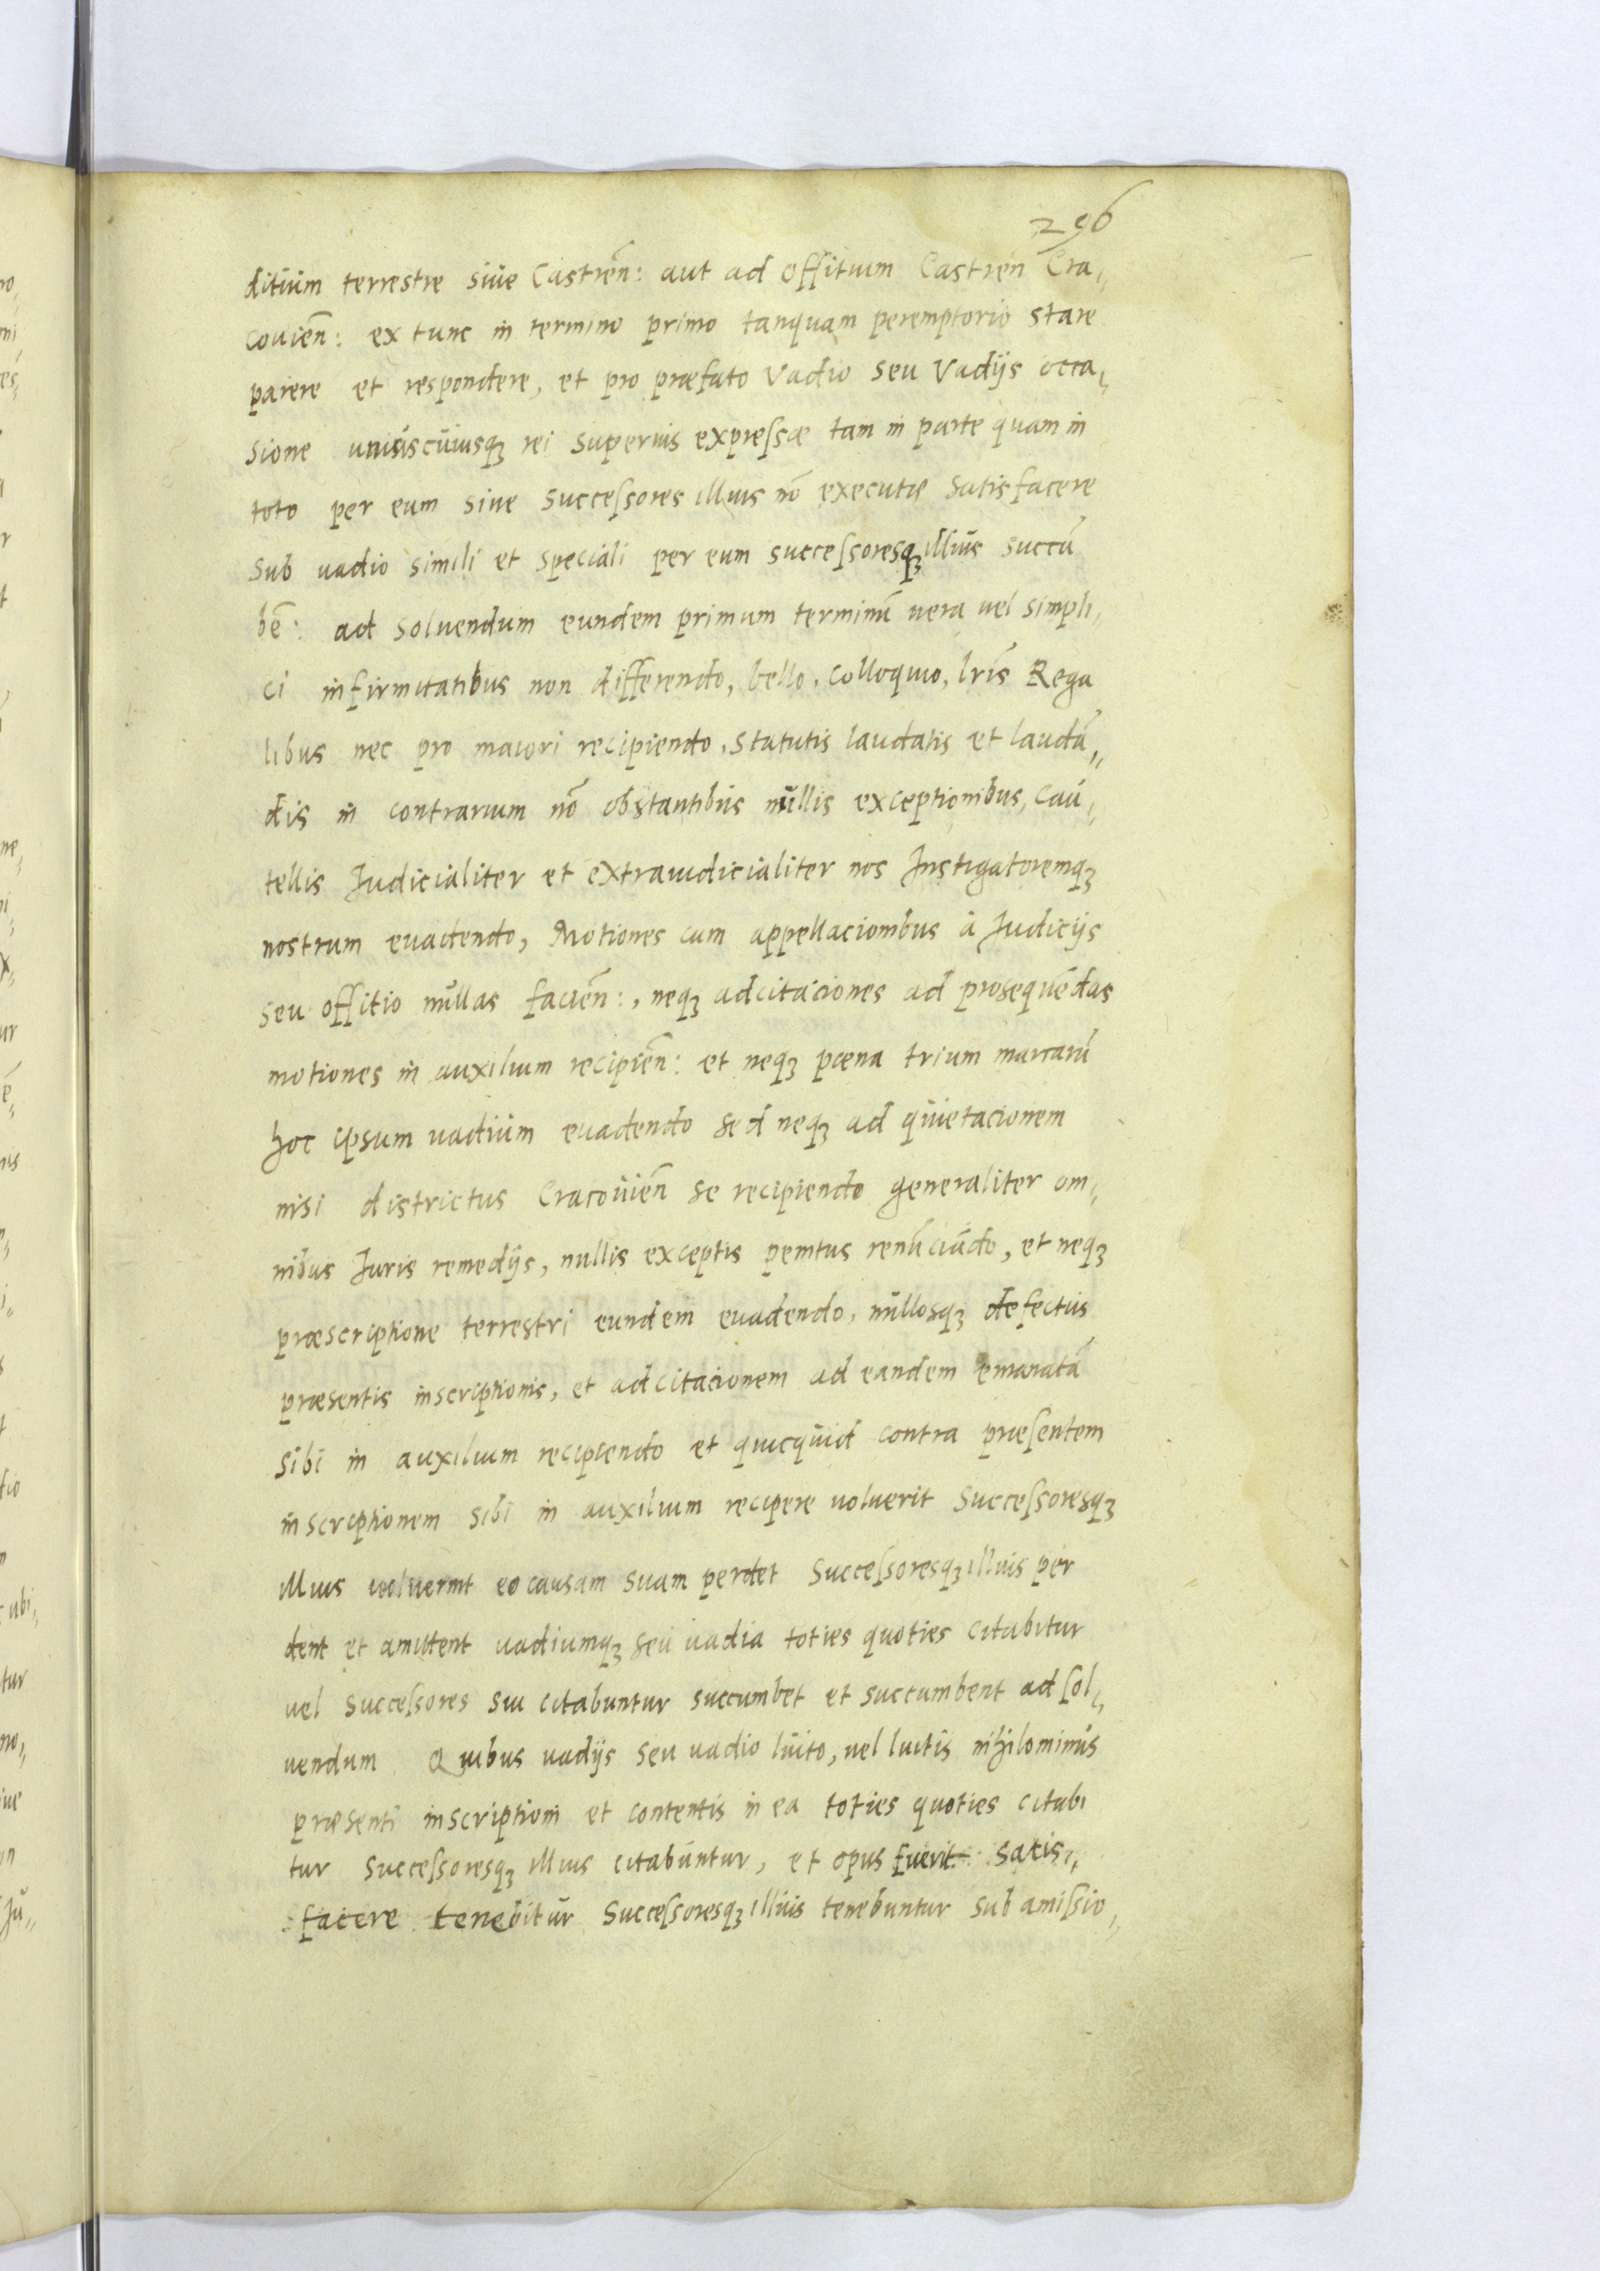 296
ditium terrestre siue Castreñ: aut ad offitium Castreñ Cra,
couieñ: ex tunc in termino primo tanquam peremptorio stare
parere et respondere, et pro præfato Vadio seu Vadijs occa,
sione uniuscuiusqꝫ rei superius expreſsæ tam in parte quam in
toto per eum siue succeſsores illius nõ executæ satisfacere
sub uadio simili et speciali per eum succeſsoresqꝫ illius succũ
bẽ: ad soluendum eundem primum terminũ uera uel simpli,
ci infirmitatibus non differendo, bello, colloquio, lr̃is Rega
libus nec pro maiori recipiendo, statutis laudatis et laudã,,
dis in contrarium nõ obstantibus nullis exceptionibus, cau,
tellis Judicialiter et extraiudicialiter nos Instigatoremqꝫ
nostrum euadendo, Motiones cum appellacionibus à Judicijs
seu offitio nullas facieñ:, neqꝫ adcitaciones ad prosequẽdas
motiones in auxilium recipieñ: et neqꝫ pœna trium marcarũ
hoc ipsum uadium euadendo sed neqꝫ ad quietacionem
nisi districtus Cracouieñ se recipiendo generaliter om,
nibus Juris remedijs, nullis exceptis penitus renũciãdo, et neqꝫ
præscriptione terrestri eundem euadendo, nullosqꝫ defectus
præsentis inscriptionis, et adcitacionem ad eandem emanatã
sibi in auxilium recipiendo et quicquid contra præſentem
inscriptionem sibi in auxilium recipere uoluerit succeſsoresqꝫ
illius uoluerint eo causam suam perdet succeſsoresqꝫ illius per
dent et amittent uadiumqꝫ seu uadia toties quoties citabitur
uel succeſsores sui citabuntur succumbet et succumbent ad ſol,
uendum Quibus uadijs seu uadio luito, uel luitis nihilominus
præsenti inscriptioni et contentis in ea toties quoties citabi
tur succeſsoresqꝫ illius citabuntur, et opus fuerit satis,,
facere tenebitur succeſsoresqꝫ illius tenebuntur sub amiſsio,